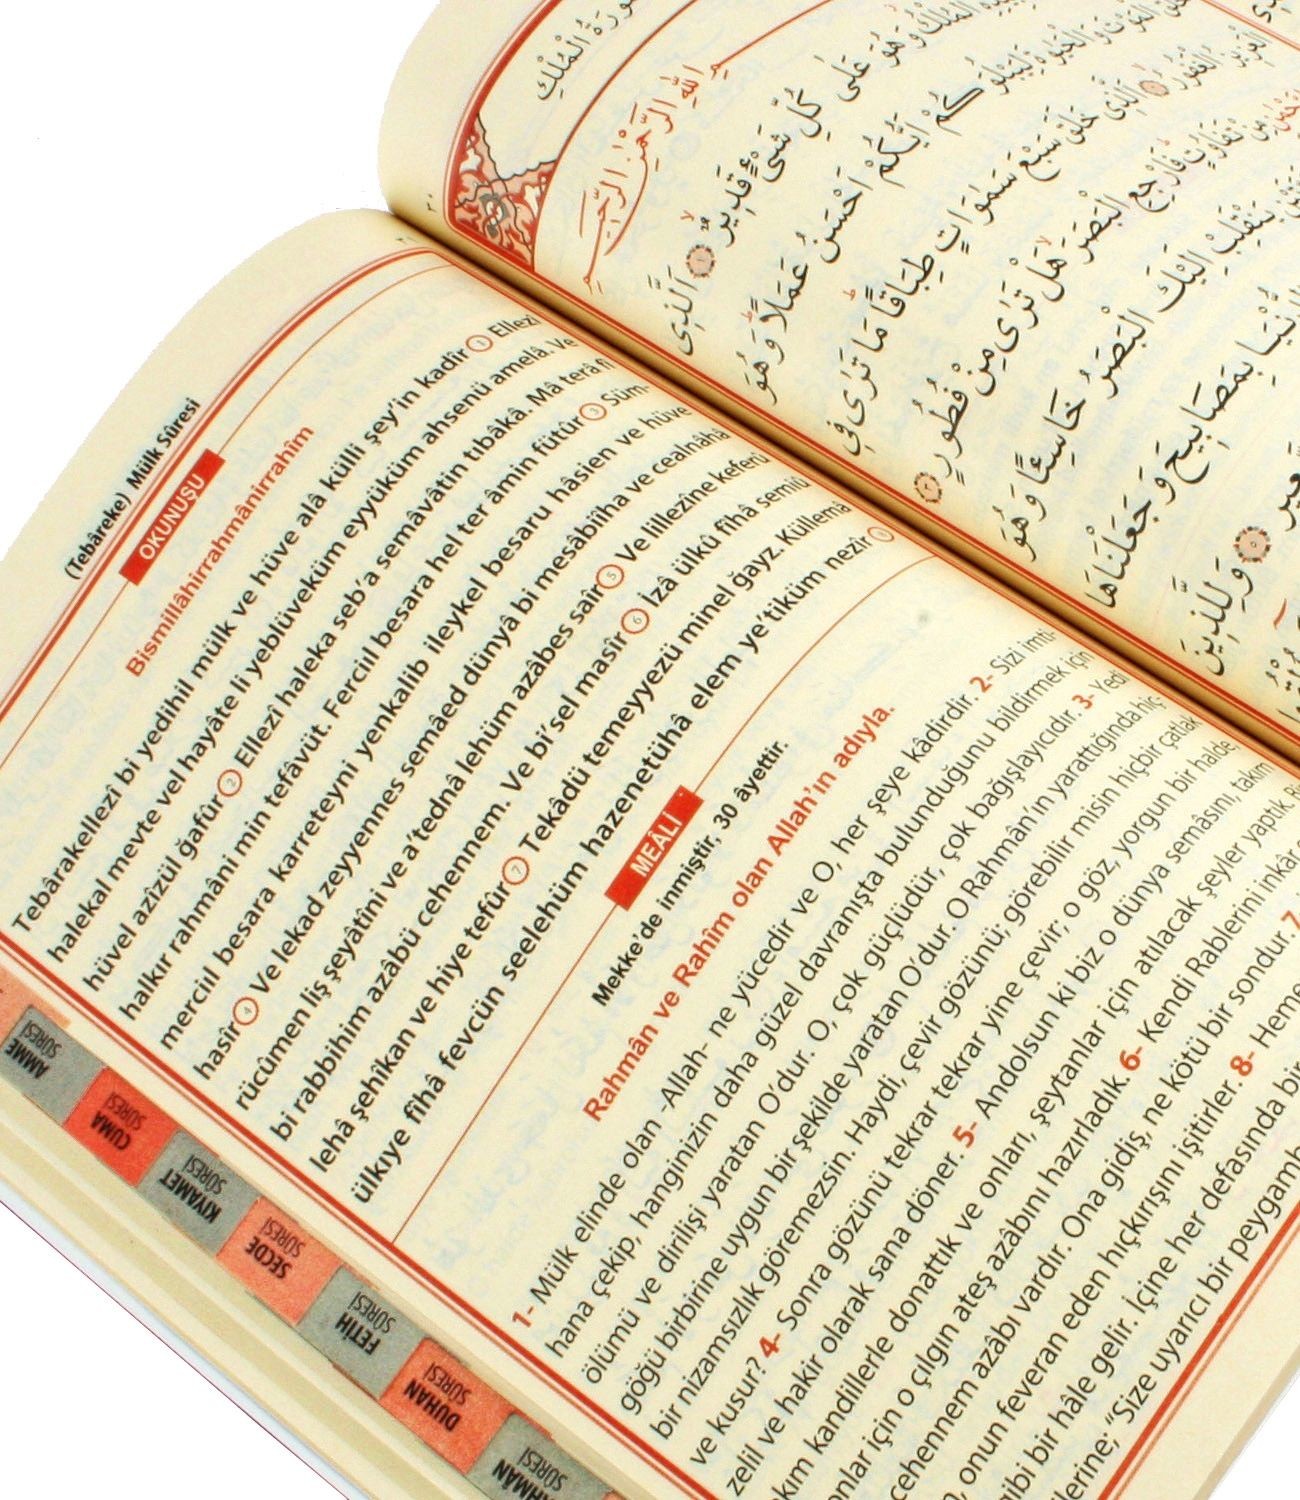 (Tebâreke) Mülk Sûresi
OKUNUŞU
Bismillâhirrahmânirrahîm
Tebârakellezî bi yedihil mülk ve hüve alâ külli şey'in kadîr 1 Ellezî
halekal mevte vel hayâte li yeblüveküm eyyüküm ahsenü amelâ. Ve
hüvel azîzül ğafûr 2 Ellezî haleka seb'a semâvâtin tıbâkâ. Mâ terâ fî
halkır rahmâni min tefâvüt. Ferciıl besara hel ter âmin fütûr 3 Süm-
merciıl besara karreteyni yenkalib ileykel besaru hâsien ve hüve
hasîr 4 Ve lekad zeyyennes semâed dünyâ bi mesâbîiha ve cealnâhâ
rücûmen liş şeyâtîni ve a'tednâ lehüm azâbes saîr 5 Ve lillezîne keferû
bi rabbihim azâbü cehennem. Ve bi'sel masîr 6 İzâ ülkû fîhâ semiû
lehâ şehîkan ve hiye tefûr 7 Tekâdü temeyyezü minel ğayz. Küllemâ
ülkıye fîhâ fevcün seelehüm hazenetühâ elem ye'tiküm nezîr 8
MEÂLİ
Mekke'de inmiştir, 30 âyettir.
Rahmân ve Rahîm olan Allah'ın adıyla.
1- Mülk elinde olan -Allah- ne yücedir ve O, her şeye kâdirdir. 2- Sizi imti-
hana çekip, hanginizin daha güzel davranışta bulunduğunu bildirmek için
ölümü ve dirilişi yaratan O'dur. O, çok güçlüdür, çok bağışlayıcıdır. 3- Yedi
göğü birbirine uygun bir şekilde yaratan O'dur. O Rahmân'ın yarattığında hiç-
bir nizamsızlık göremezsin. Haydi, çevir gözünü; görebilir misin hiçbir çatlak
ve kusur? 4- Sonra gözünü tekrar tekrar yine çevir; o göz, yorgun bir halde,
zelil ve hakir olarak sana döner. 5- Andolsun ki biz o dünya semâsını, takım
kım kandillerle donattık ve onları, şeytanlar için atılacak şeyler yaptık.
onlar için o çılgın ateş azabını hazırladık. 6- Kendi Rablerini inkâr
cehennem azâbı vardır. Ona gidiş, ne kötü bir sondur. 7
onun feveran eden hıçkırışını işitirler. 8- Heme
gibi bir hâle gelir. İçine her defasında bir
lerine; "Size uyarıcı bir peygamb
AMME SÛRESİ
CUMA SÛRESİ
KIYAMET SÛRESİ
SECDE SÛRESİ
FETİH SÛRESİ
DUHAN SÛRESİ
HMÂN SÛRESİ
سُورَةُ الْمُلْكِ
اللّٰهِ الرَّحْمٰنِ الرَّحِيمِ
الْمُلْكُ وَهُوَ عَلٰى كُلِّ شَىْءٍ قَدِيرٌ ۙ ١ اَلَّذِى
الْمَوْتَ وَالْحَيٰوةَ لِيَبْلُوَكُمْ اَيُّكُمْ اَحْسَنُ عَمَلًا ۜ وَهُوَ
الْعَزِيزُ الْغَفُورُ ۙ ٢ اَلَّذِى خَلَقَ سَبْعَ سَمٰوَاتٍ طِبَاقًا ۜ مَا تَرٰى فِى
مِنْ تَفَاوُتٍ ۜ فَارْجِعِ الْبَصَرَ ۙ هَلْ تَرٰى مِنْ فُطُورٍ ٣
يَنْقَلِبْ اِلَيْكَ الْبَصَرُ خَاسِئًا وَهُوَ
الدُّنْيَا بِمَصَابِيحَ وَجَعَلْنَاهَا
السَّعِيرِ ٥ وَلِلَّذِينَ